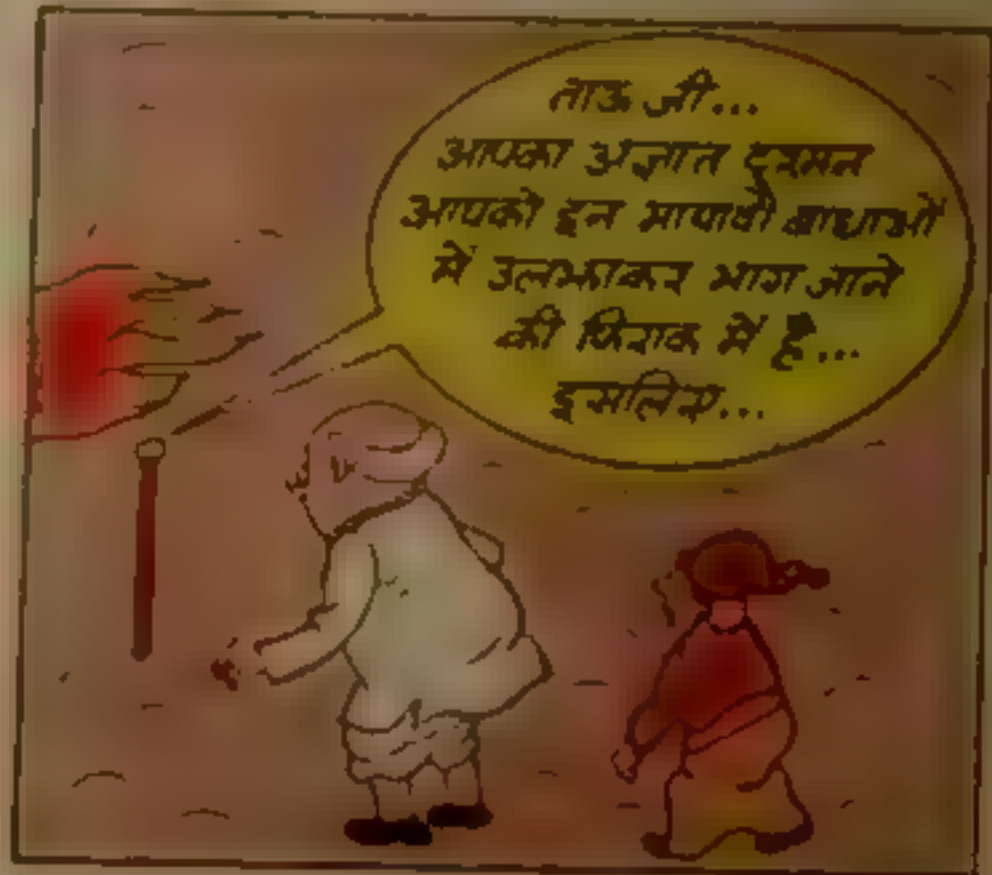 ताऊ जी...
आपका अज्ञात दुश्मन
आपको इन मायावी बाधाओं
में उलझाकर भाग जाने
की फिराक में है...
इसलिए...